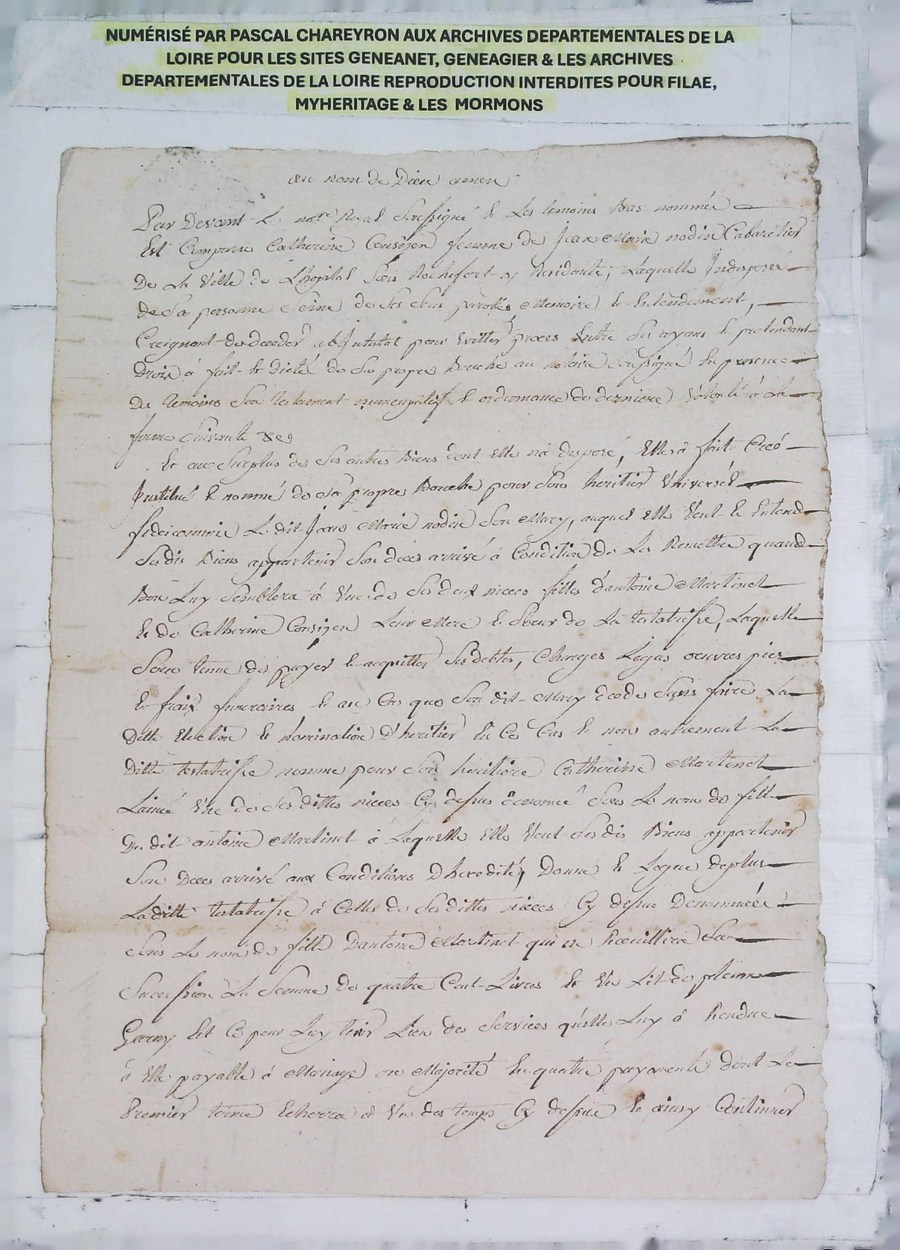 NUMÉRISÉ PAR PASCAL CHAREYRON AUX ARCHIVES DEPARTEMENTALES DE LA
LOIRE POUR LES SITES GENEANET, GENEAGIER & LES ARCHIVES
DEPARTEMENTALES DE LA LOIRE REPRODUCTION INTERDITES POUR FILAE,
MYHERITAGE & LES MORMONS
au nom de Dieu amen
Par Devant Le not.re Royal Soussigné & Les temoins Bas nommés
Est Comparue Catherine Consigen femme de Jean Marie nodin Cabaretier
De La Ville de L'hopital Sous Rochefort y Residante, Laquelle Indisposée
de Sa personne Seine de Ses Sens parole Memoire & Entendement,
Craignant de deceder ab Intestat pour Evitter proces Entre Ses ayans & pretendant
Drois à fait & dicté de Sa propre Bouche au notaire Soussigné En presence
De temoins Son testament nuncupatif & ordonnance de derniere Volonté à La
forme Suivante &c
Et au Surplus de Ses autres Biens dont Elle n'a disposé, Elle à fait Créé
Institué & nommé de Sa propre Bouche pour Son heritier Universel
fideicommis Le dit Jean Marie nodin Son Mary, auquel Elle Veut & Entend
Sesdis Biens appartenir Son déces arrivé à Condition de Les Remettre quand
Bon Luy Semblera à Une de Ses deux nieces filles d'antoine Martinet
& de Catherine Consigen Leur Mere & Soeur de La testatrisse, Laquelle
Sera tenue de payer & acquitter Ses debtes, Charges Legas oeuvres pies
& fraix funeraires & au Cas que Son dit Mary decede Sans faire La
Ditte Election & nomination D'heritier En Ce Cas & non autrement La
Ditte testatrisse nomme pour Son heritiere Catherine Martinet
L'ainé Une de Ses dittes nieces Cy dessus dénomée Sous Le nom de fille
Du dit antoine Martinet à Laquelle Elle Veut Ses dis Biens appartenir
Son Déces arrivé aux Conditions D'heredité, Donne & Legue deplus
Laditte testatrisse à Celle de Ses dittes nieces Cy dessus Denommées
Sous Le nom de fille D'antoine Martinet qui en Receuillira Sa
Succession La Somme de quatre Cent Livres & Un Lit de plume
Garny Et Ce pour Luy tenir Lieu des Services qu'elle Luy à Rendue
à Elle payable à Mariage ou Majorité En quatre payements dont Le
Premier terme Echerra à Un des temps Cy dessus & ainsy Continuer